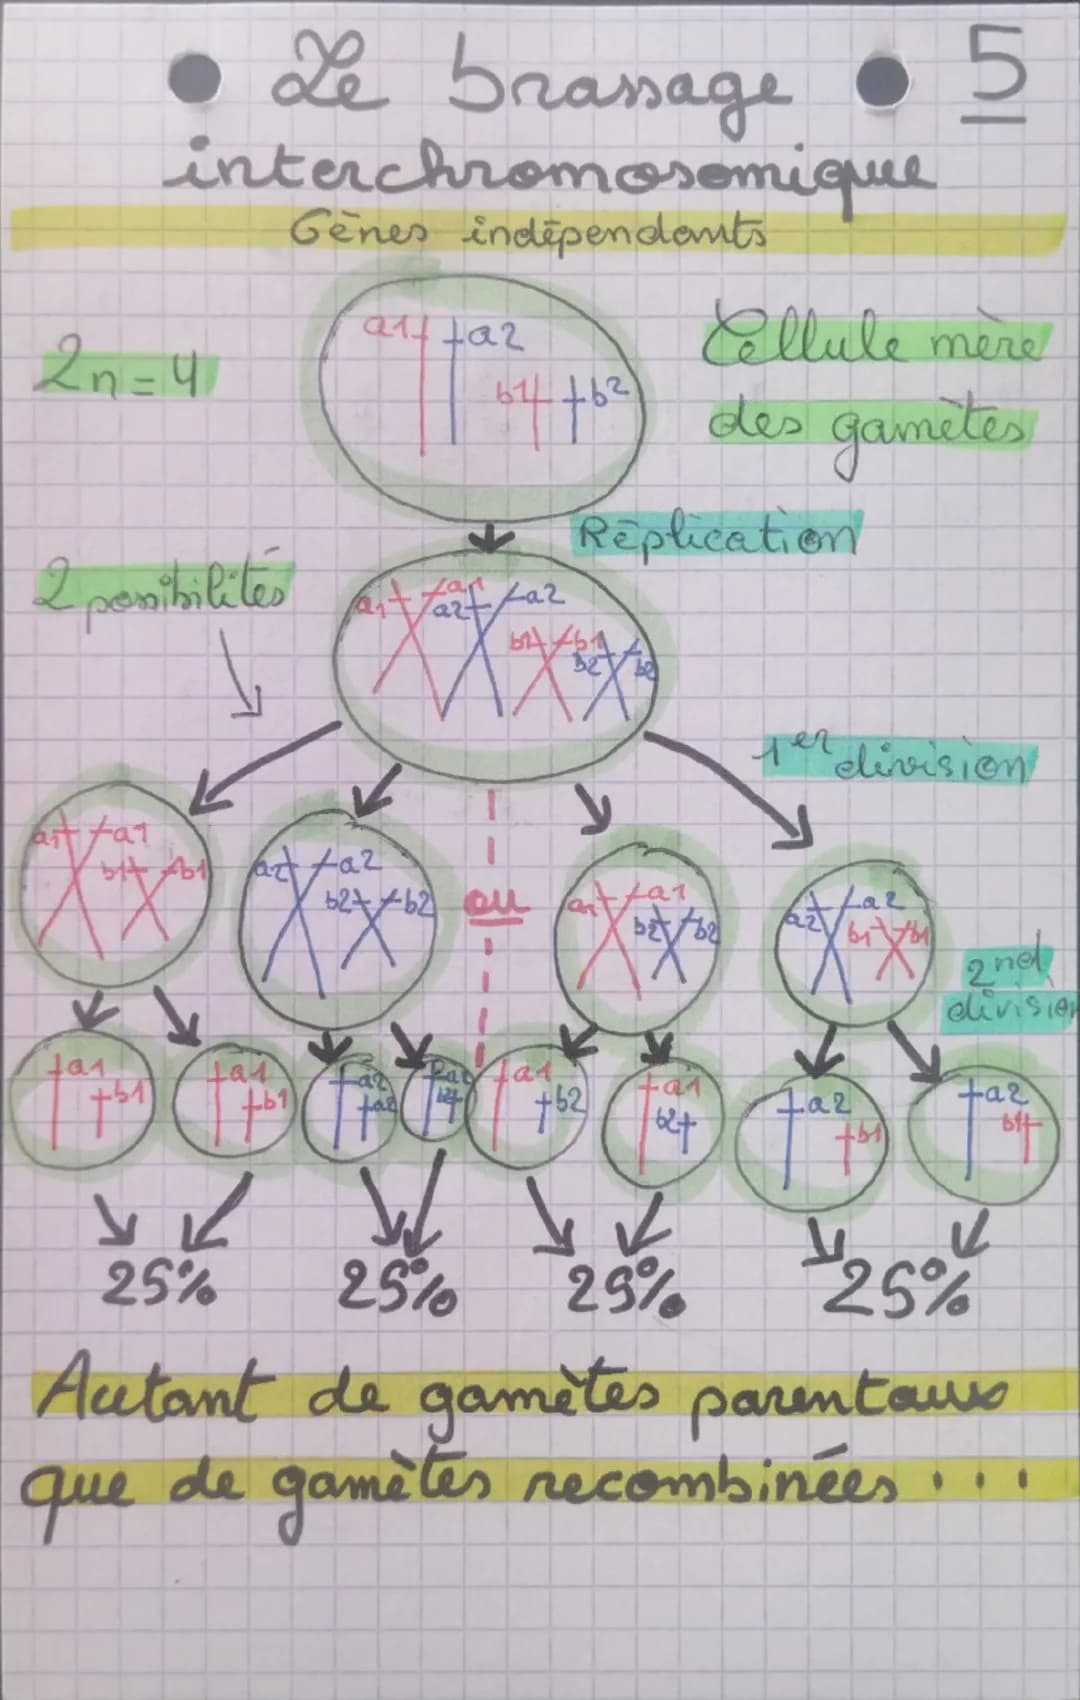 Le brassage 5
interchromosomique
Gènes indépendants
2n = 4
a1 a2
b1 b2
Cellule mère
des gamètes
Réplication
2 possibilités
a1 a1 a2 a2
b1 b1 b2 b2
1er division
a1 a1 b1 b1
a2 a2 b2 b2
ou
a1 a1 b2 b2
a2 a2 b1 b1
2nd
division
a1 b1
a1 b1
a2 a2
a2 b2
a1 b2
a1 b2
a2 b1
a2 b1
25% 25% 25% 25%
Autant de gamètes parentaux
que de gamètes recombinées ...